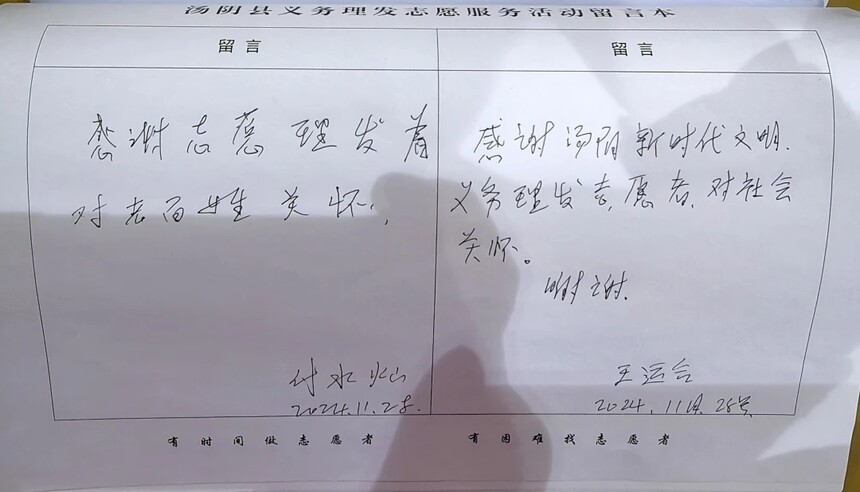 汤阴县义务理发志愿服务活动留言本
留言
感谢志愿理发者
对老百姓关怀,
付水
2024.11.28.
留言
感谢汤阴新时代文明.
义务理发志愿者.对社会
关怀。
谢谢.
王运合
2024.11月.28号
有时间做志愿者 有困难找志愿者